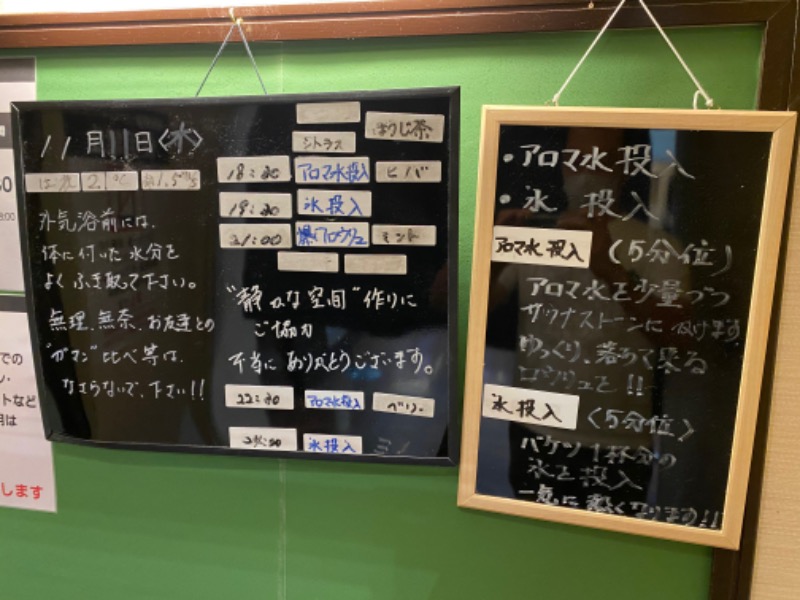 11月11日〈木〉
外気浴前には、
体に付いた水分を
よくふき取って下さい。
無理、無茶、お友達との
"ガマン"比べ等は、
なさらないで、下さい!!
ほうじ茶
シトラス
18:30 アロマ水投入 ヒバ
19:30 氷投入
21:00 爆アロウリュ ミント
"静かな空間"作りに
ご協力
本当に ありがとうございます。
22:30 アロマ水投入
氷投入
・アロマ水投入
・氷 投入
アロマ水投入 (5分位)
アロマ水を少量づつ
サウナストーンにかけます。
ゆっくり、落ちて来る
ロウリュを!!
氷投入 〈5分位〉
バケツ1杯分の
氷を投入
一気に熱くなります!!
での
トなど
月は
します